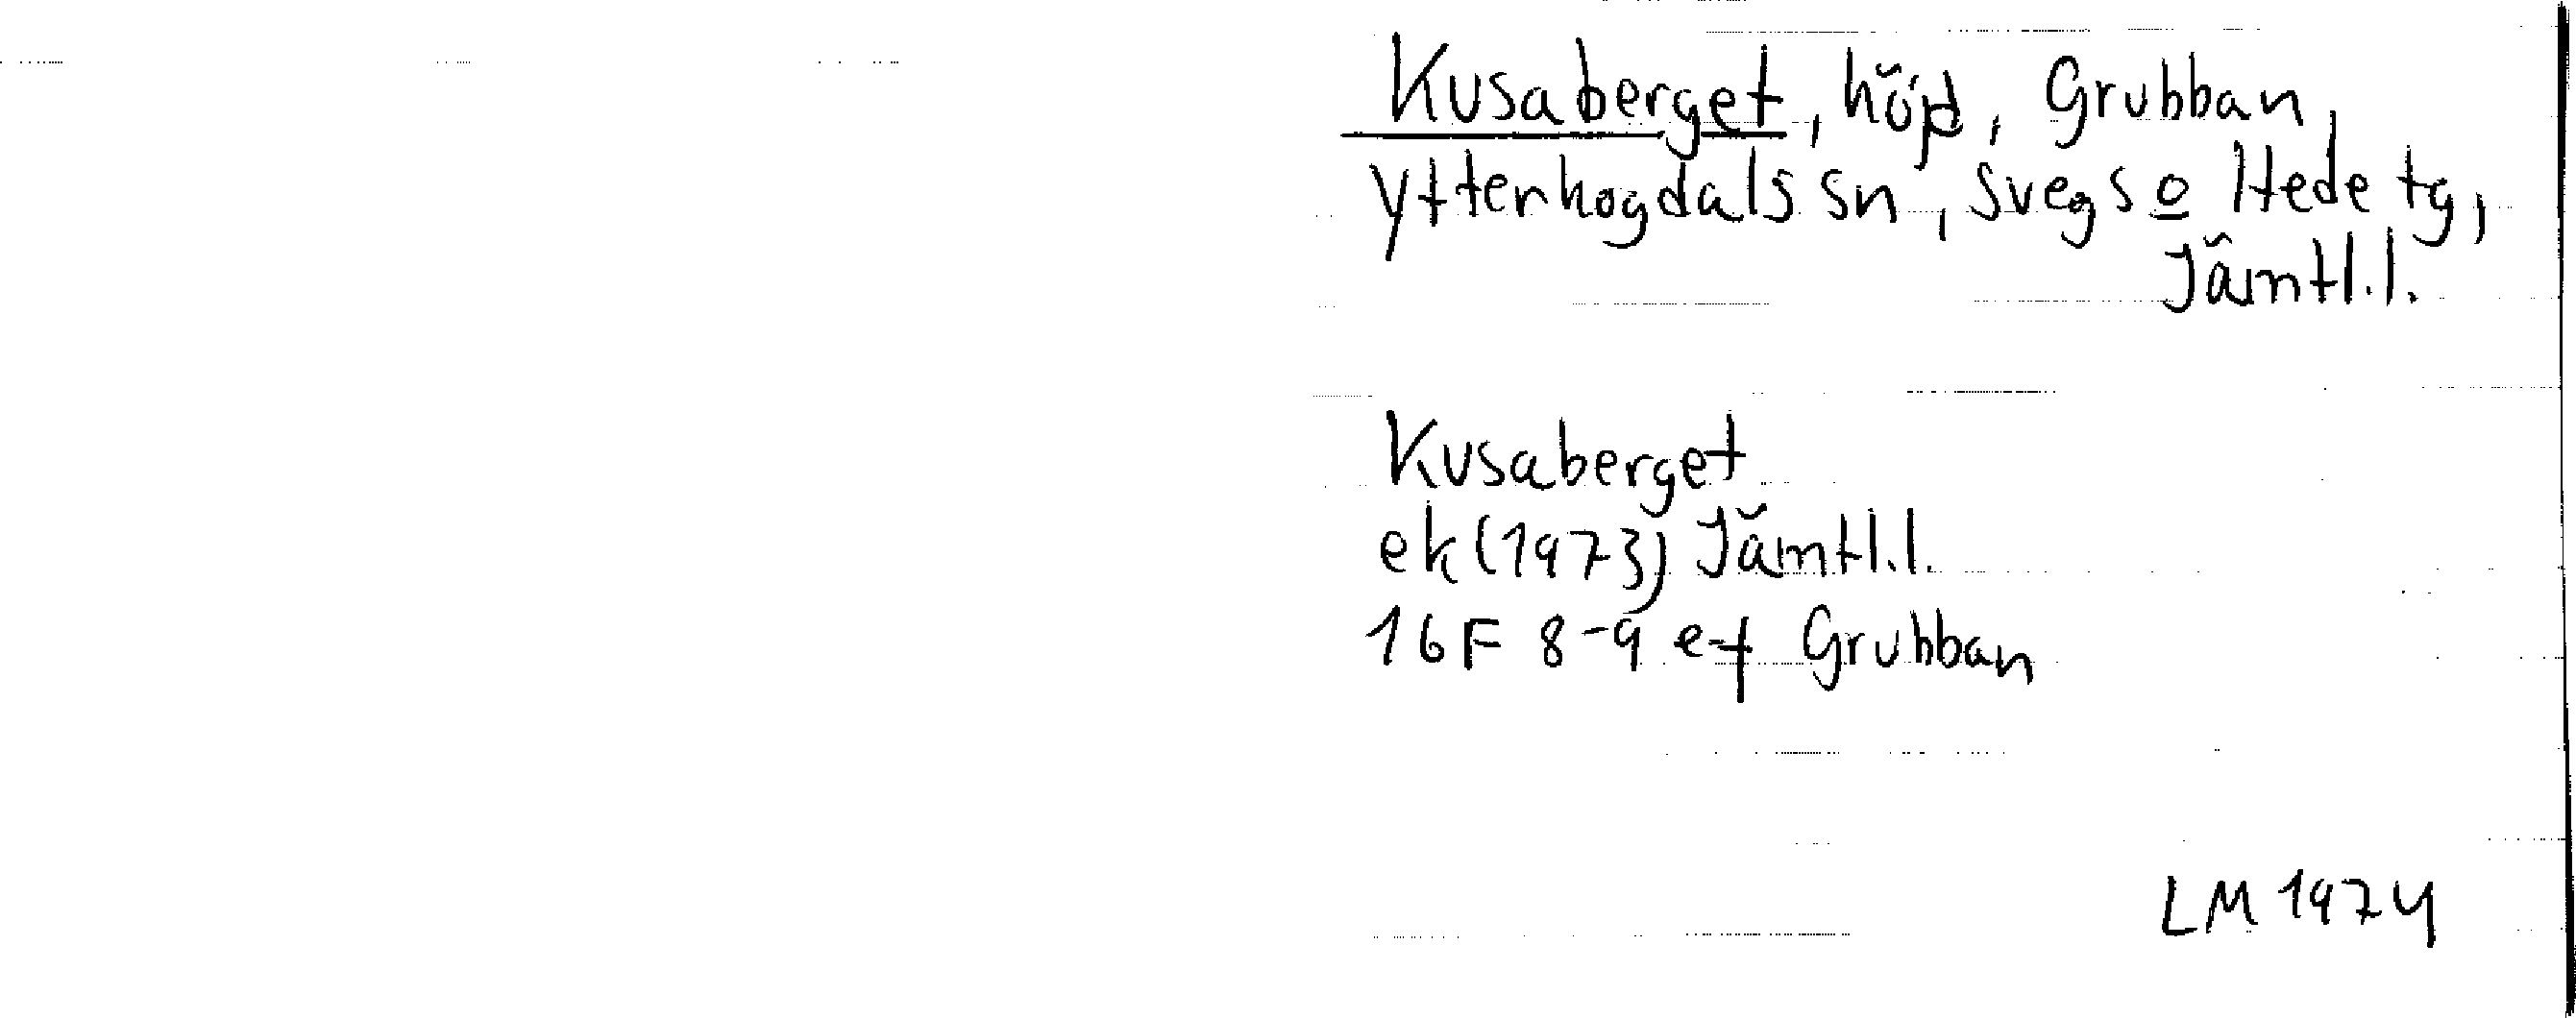 Kusaberget, höjd, Grubban,
Ytterhogdals sn, Svegs o Hede tg,
Jämtl.l.
Kusaberget
ek (1973) Jämtl.l.
16F 8-9 e-f Grubban
LM 1974